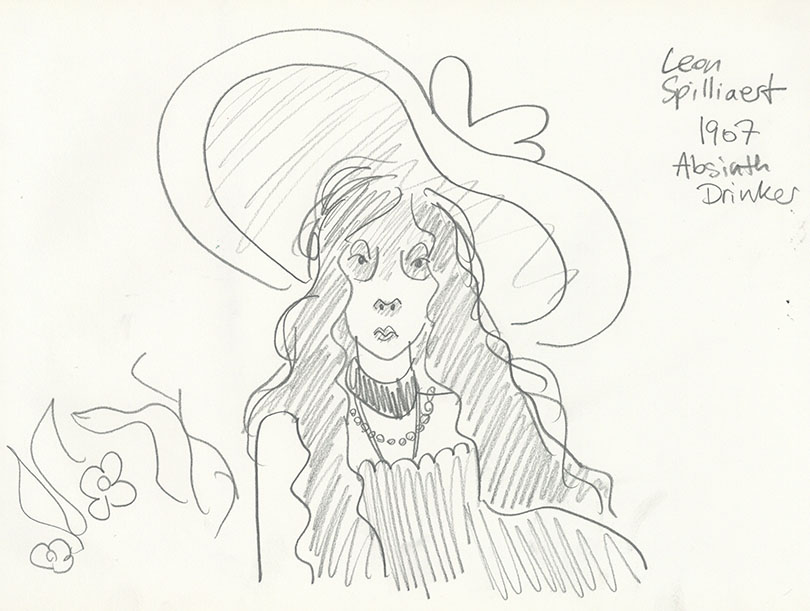 Leon
Spilliaert
1907
Absinth
Drinker